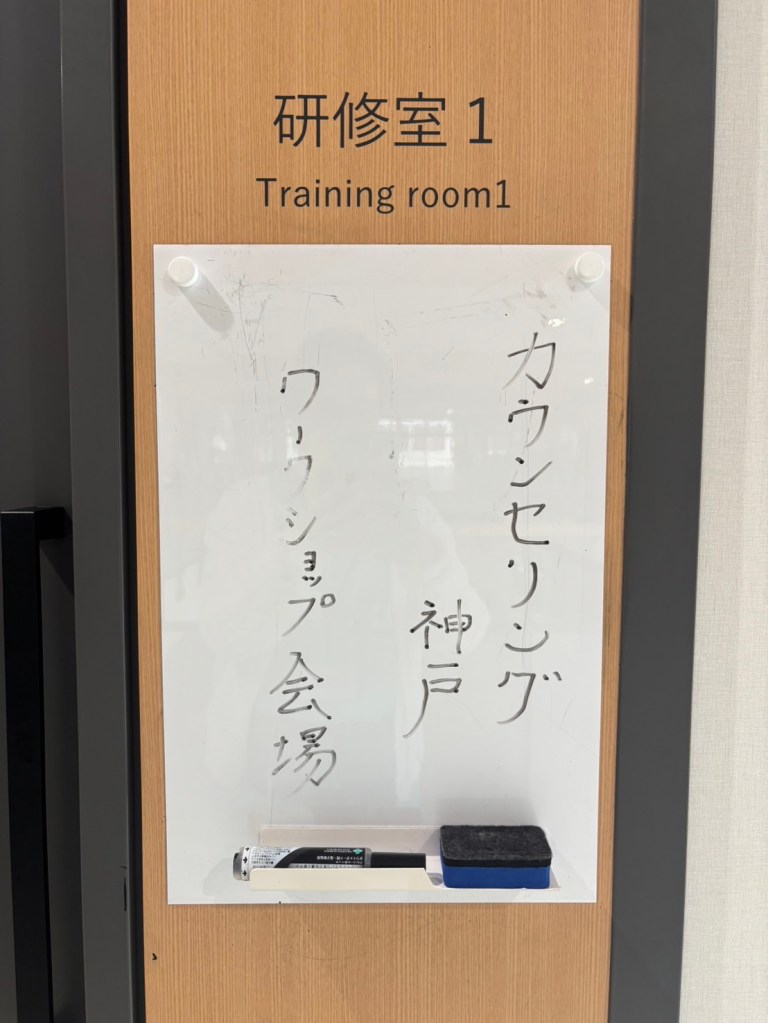 研修室 1
Training room1
カウンセリング
神戸
ワークショップ会場